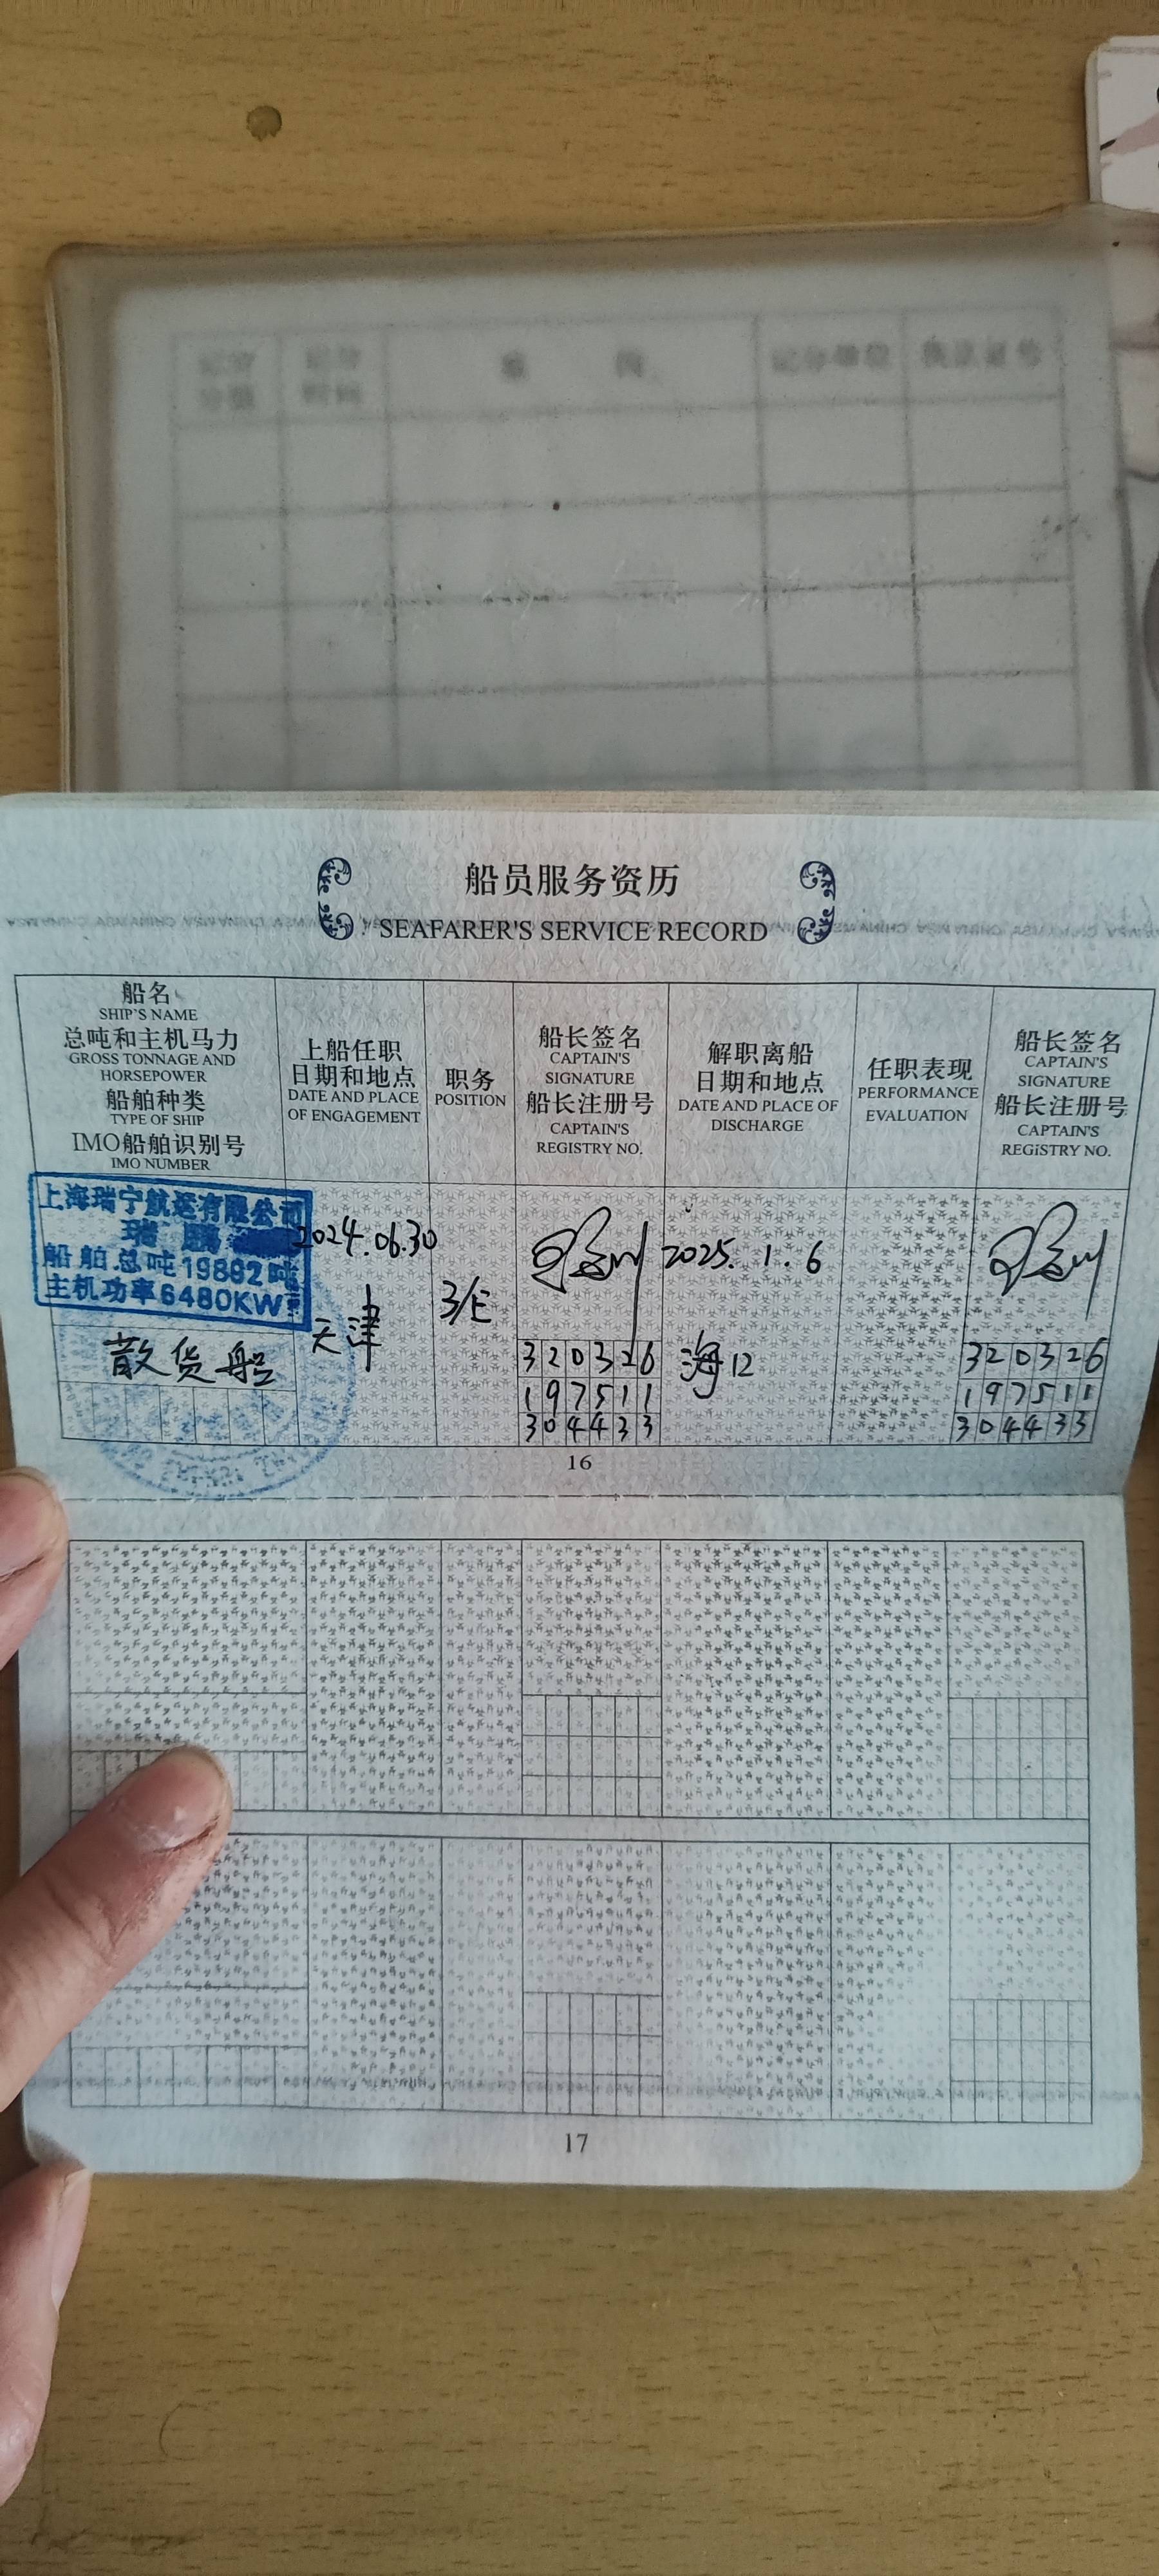 船员服务资历
SEAFARER'S SERVICE RECORD
船名
SHIP'S NAME
总吨和主机马力
GROSS TONNAGE AND
HORSEPOWER
船舶种类
TYPE OF SHIP
IMO船舶识别号
IMO NUMBER
上船任职
日期和地点
DATE AND PLACE
OF ENGAGEMENT
职务
POSITION
船长签名
CAPTAIN'S
SIGNATURE
船长注册号
CAPTAIN'S
REGISTRY NO.
解职离船
日期和地点
DATE AND PLACE OF
DISCHARGE
任职表现
PERFORMANCE
EVALUATION
船长签名
CAPTAIN'S
SIGNATURE
船长注册号
CAPTAIN'S
REGISTRY NO.
上海瑞宁航运有限公司
瑞鹏
船舶总吨19862吨
主机功率6480KW
散货船
2024.06.30
天津
3/E
320326
197511
304433
2025.1.6
海12
320326
197511
304433
16
17